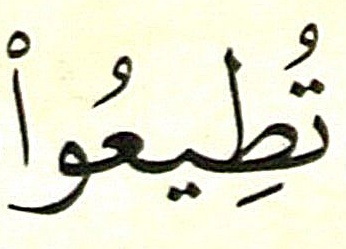 تُطِيعُوا۟